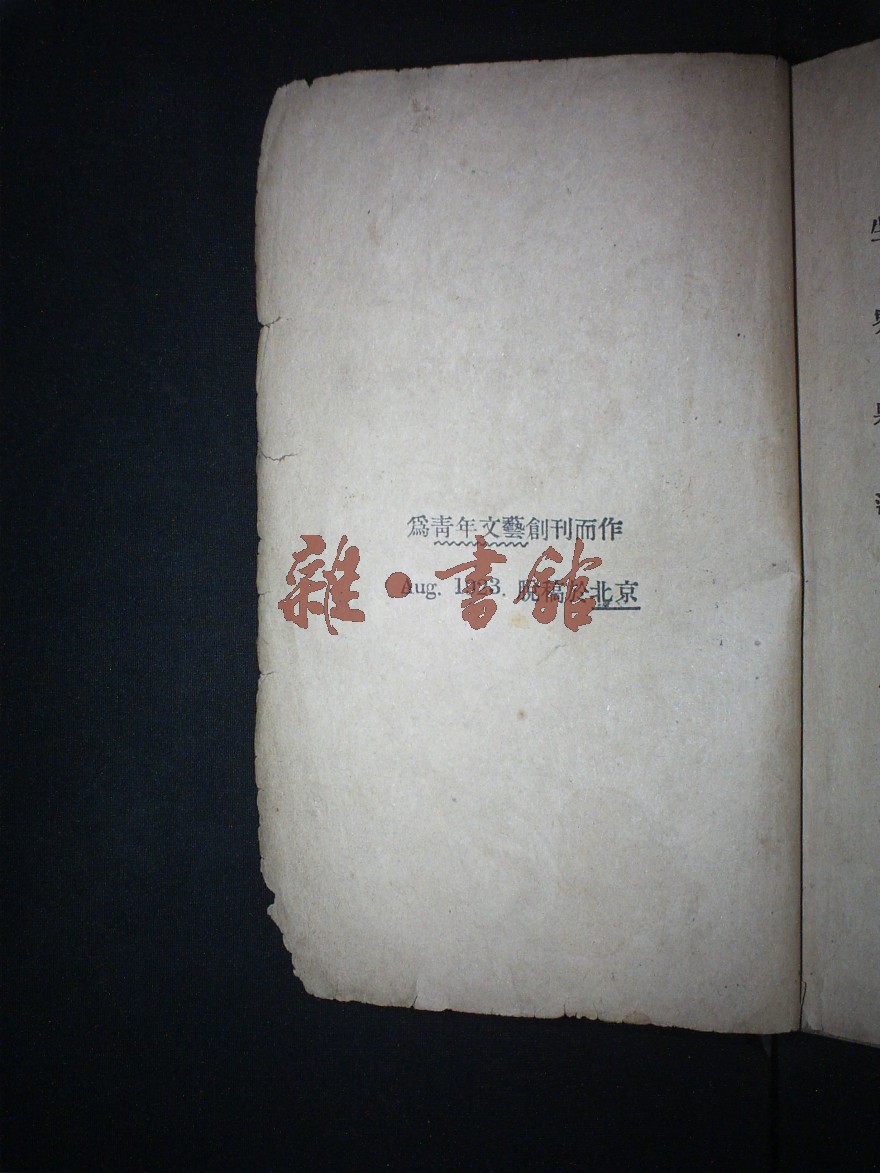 爲青年文藝創刊而作
Aug. 1923. 脫稿於北京
雜·書館